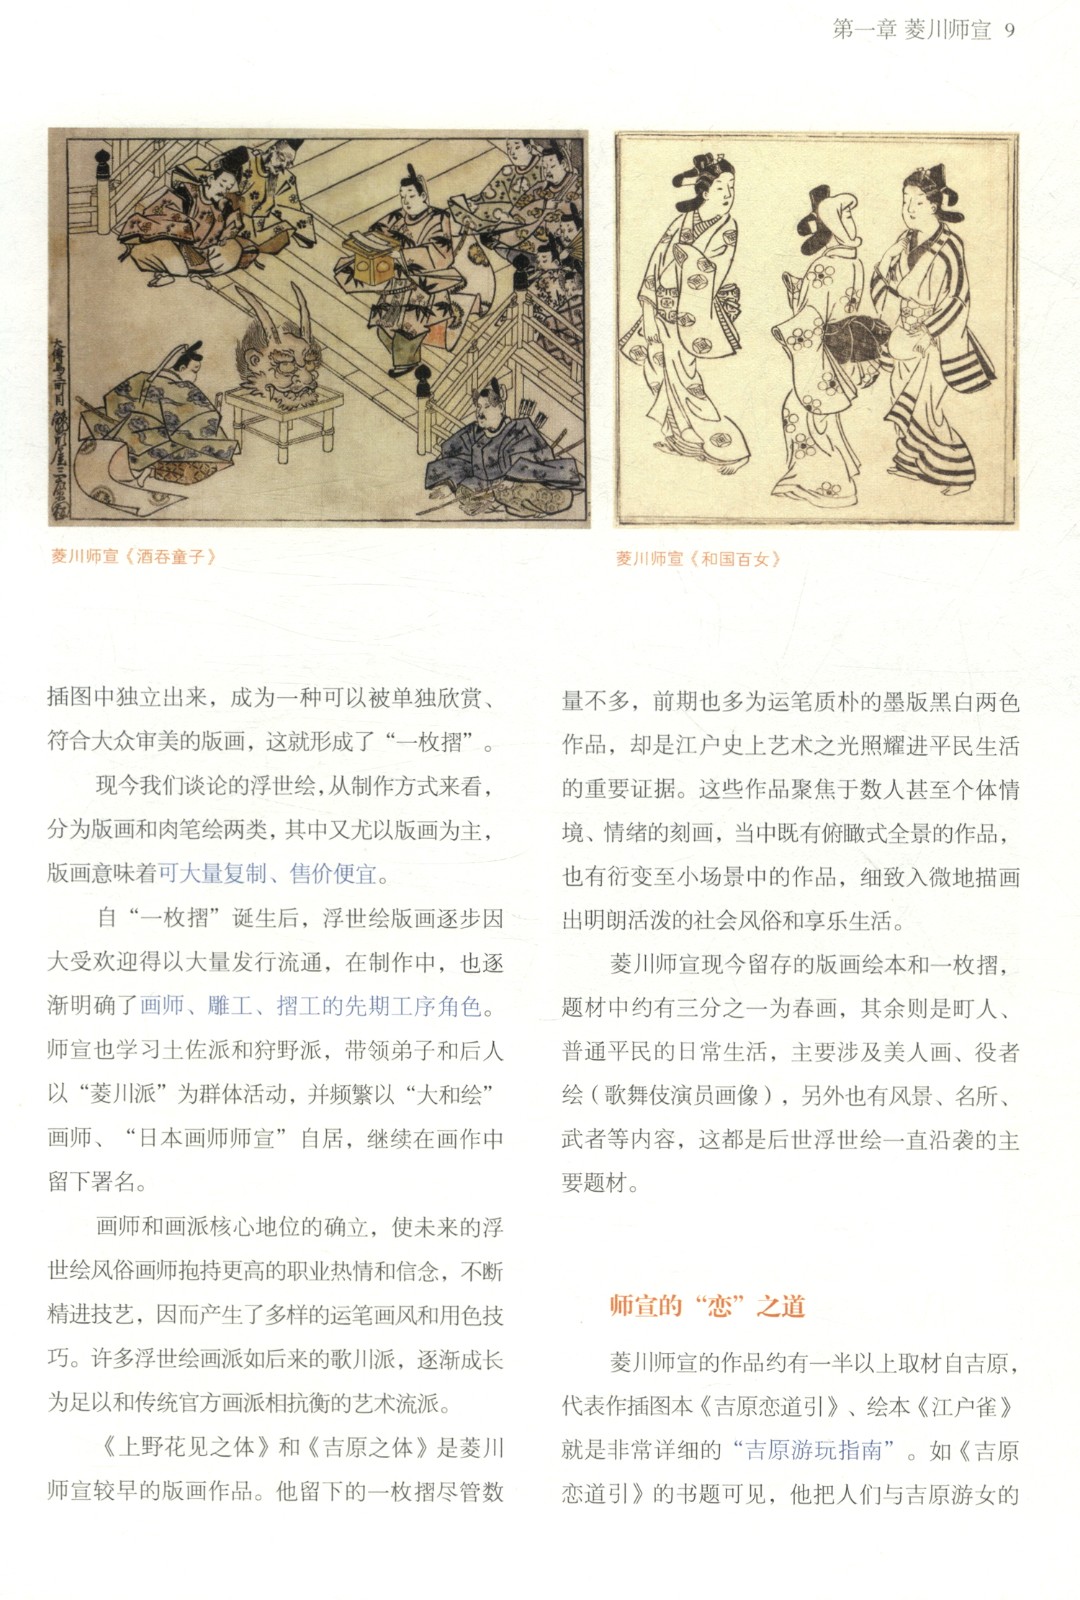 第一章 菱川师宣 9
菱川师宣《酒吞童子》
菱川师宣《和国百女》
插图中独立出来，成为一种可以被单独欣赏、
符合大众审美的版画，这就形成了“一枚摺”。
现今我们谈论的浮世绘，从制作方式来看，
分为版画和肉笔绘两类，其中又尤以版画为主，
版画意味着可大量复制、售价便宜。
自“一枚摺”诞生后，浮世绘版画逐步因
大受欢迎得以大量发行流通，在制作中，也逐
渐明确了画师、雕工、摺工的先期工序角色。
师宣也学习土佐派和狩野派，带领弟子和后人
以“菱川派”为群体活动，并频繁以“大和绘”
画师、“日本画师师宣”自居，继续在画作中
留下署名。
画师和画派核心地位的确立，使未来的浮
世绘风俗画师抱持更高的职业热情和信念，不断
精进技艺，因而产生了多样的运笔画风和用色技
巧。许多浮世绘画派如后来的歌川派，逐渐成长
为足以和传统官方画派相抗衡的艺术流派。
《上野花见之体》和《吉原之体》是菱川
师宣较早的版画作品。他留下的一枚摺尽管数
量不多，前期也多为运笔质朴的墨版黑白两色
作品，却是江户史上艺术之光照耀进平民生活
的重要证据。这些作品聚焦于数人甚至个体情
境、情绪的刻画，当中既有俯瞰式全景的作品，
也有衍变至小场景中的作品，细致入微地描画
出明朗活泼的社会风俗和享乐生活。
菱川师宣现今留存的版画绘本和一枚摺，
题材中约有三分之一为春画，其余则是町人、
普通平民的日常生活，主要涉及美人画、役者
绘（歌舞伎演员画像），另外也有风景、名所、
武者等内容，这都是后世浮世绘一直沿袭的主
要题材。
师宣的“恋”之道
菱川师宣的作品约有一半以上取材自吉原，
代表作插图本《吉原恋道引》、绘本《江户雀》
就是非常详细的“吉原游玩指南”。如《吉原
恋道引》的书题可见，他把人们与吉原游女的